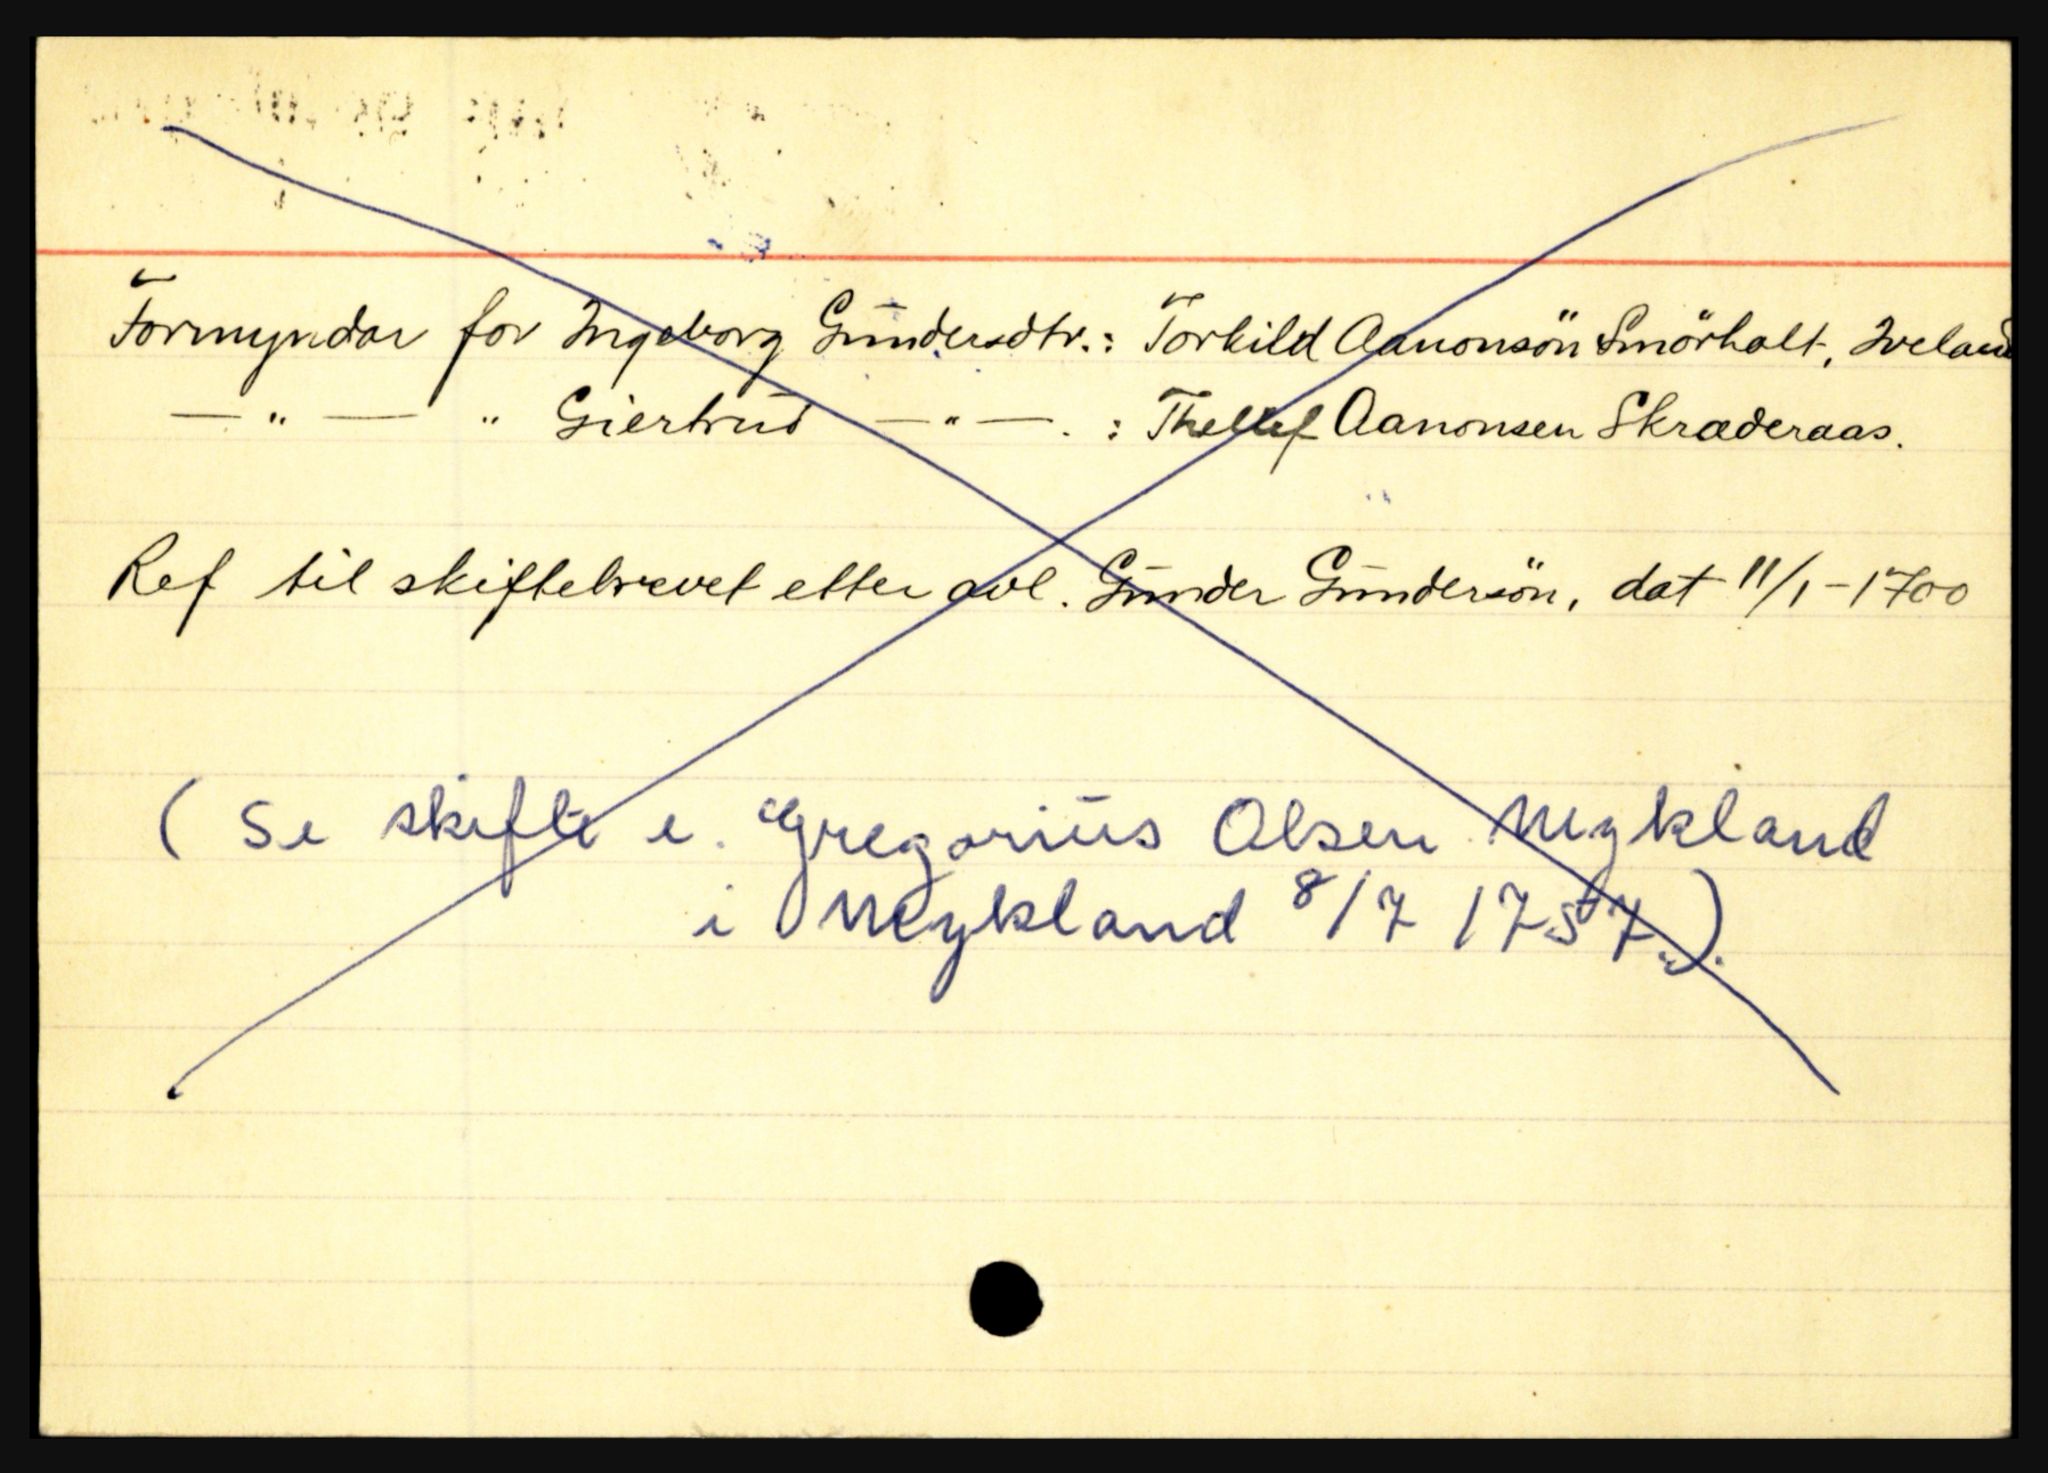 Formyndar for Ingeborg Gundersdtr.: Torkild Aanonsön Smörholt, Iveland
— " — " Giertrud — " — . : Thellef Aanonsen Skræderaas.
Ref til skiftebrevet etter avl. Gunder Gundersön, dat 11/1-1700
(Se skifte e. Gregorius Olsen Mykland
i Mykland 8/7 1757.).